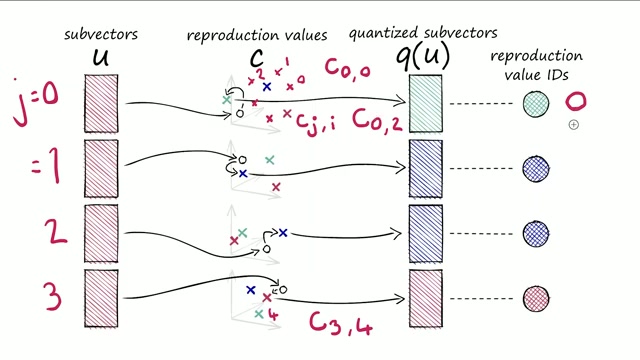 subvectors
reproduction values
quantized subvectors
reproduction
value IDs
u
c
q(u)
j=0
2
1
0
c0,0
cj,i
c0,2
0
=1
2
3
4
c3,4